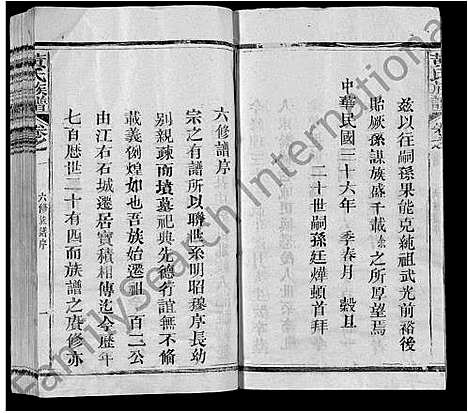 黃氏族譜
卷之
茲以往嗣孫果能克繩祖武光前裕後
貽厥孫謀族盛千載
之所厚望焉
中華民國三十六年 季春月 穀旦
二十世嗣孫廷燁頓首拜
六修譜序
宗之有譜所以聯世系明昭穆序長幼
別親疎而墳墓祀典先德行誼無不備
載義例煌如也吾族始遷祖一百二公
由江右石城遷居寶積相傳迄今歷年
七百曆世二十有四而族譜之賡修亦
黃氏族譜
卷之
六修族譜序
一
FamilySearch International